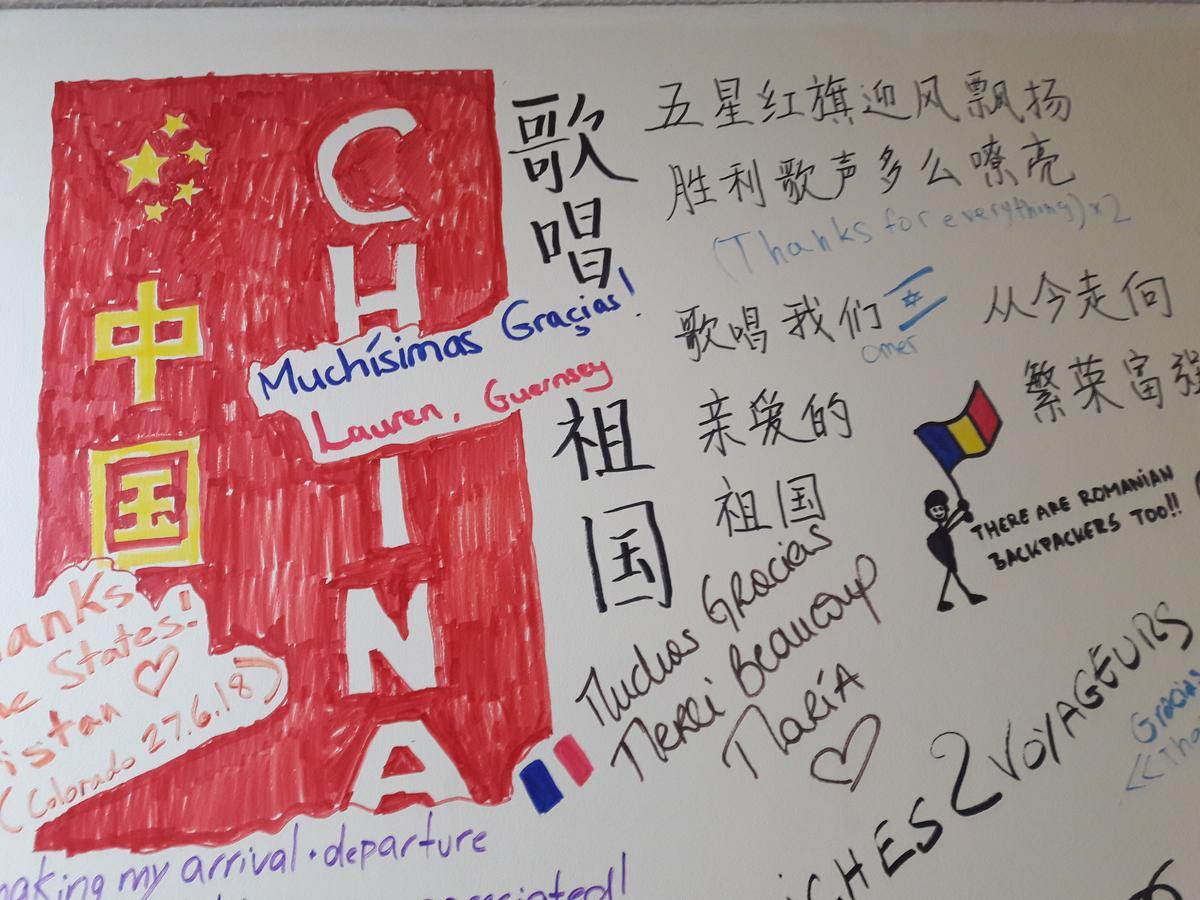 中国
CHINA
Muchísimas Graçias!
Lauren, Guernsey
歌唱祖国
五星红旗迎风飘扬
胜利歌声多么嘹亮
(Thanks for everything) x 2
歌唱我们
omer
亲爱的
祖国
从今走向
繁荣富强
THERE ARE ROMANIAN
BACKPACKERS TOO!!
Muchas Gracias
Merci Beaucoup
MaríA
States!
(Colorado 27.6.18)
my arrival • departure
2 VOYAGEURS